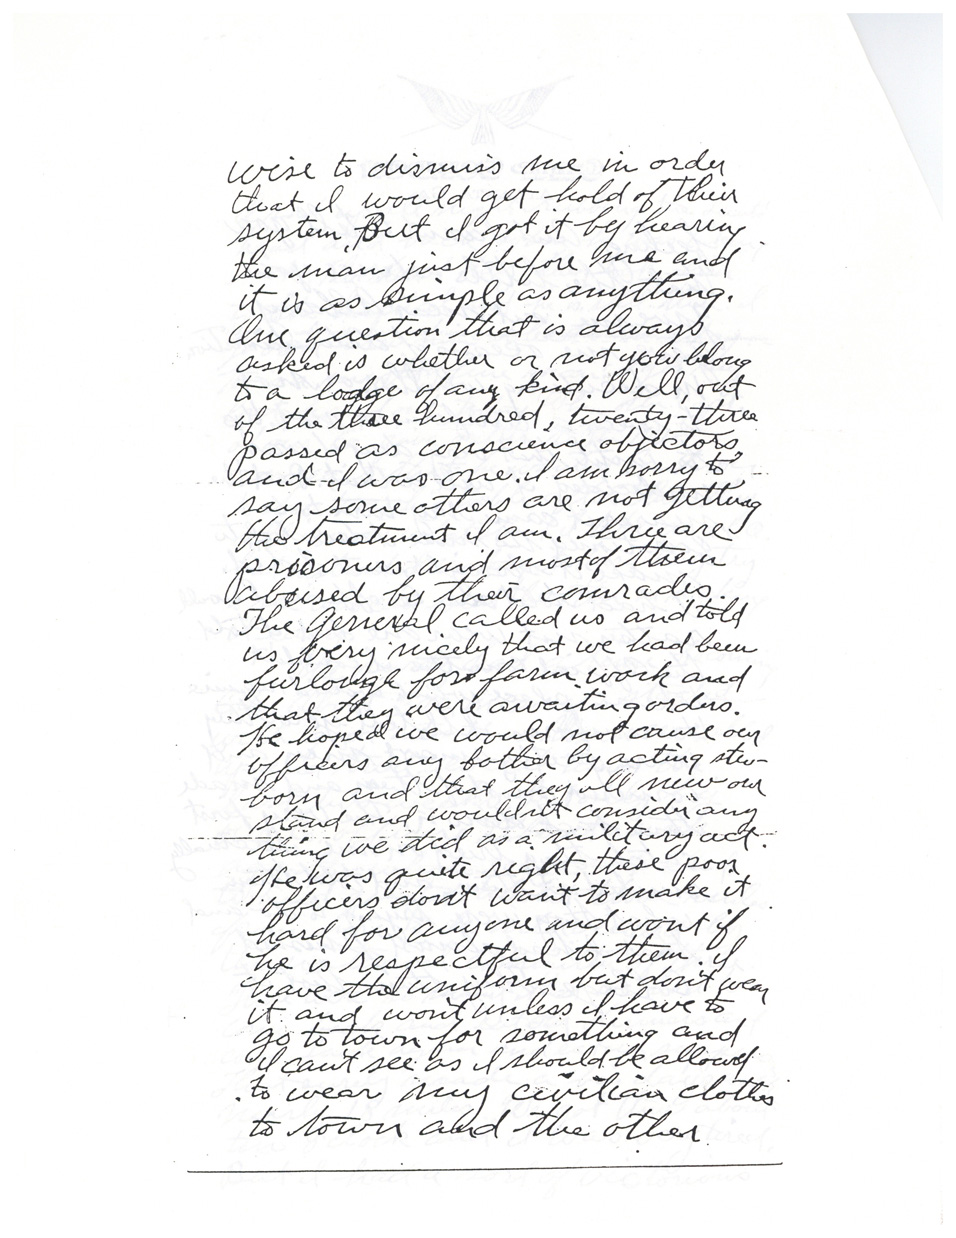 wise to dismiss me in order
that I would get hold of their
system, But I got it by hearing
the man just before me and
it is as simple as anything.
One question that is always
asked is whether or not you belong
to a lodge of any kind. Well, out
of the three hundred, twenty-three
passed as conscience objectors
and I was one. I am sorry to
say some others are not getting
the treatment I am. Three are
prisoners and most of them
abused by their comrades.
The General called us and told
us very nicely that we had been
furlough for farm work and
that they were awaiting orders.
He hoped we would not cause our
officers any bother by acting stu-
born and that they all new our
stand and wouldn't consider any
thing we did as a military act.
He was quite right, these poor
officers don't want to make it
hard for anyone and wont if
he is respectful to them. I
have the uniform but don't wear
it and won't unless I have to
go to town for something and
I can't see as I should be allowed
to wear my civilian clothes
to town and the other